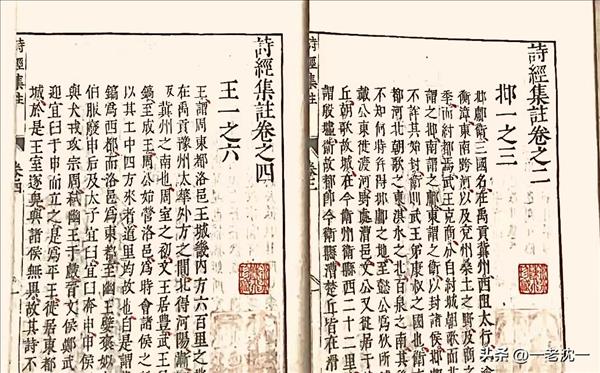 詩經集註卷之二
邶一之三
邶鄘衞三國名在禹貢冀州西阻太行
衡漳東南跨河以及兗州桑土之野及商
季而紂都焉武王克商分自紂城朝歌而北
謂之邶南謂之鄘東謂之衛以封諸侯邶
不詳其始封衛則武王弟康叔之國也衛
都河北朝歌之東淇水之北百泉之南其
不知何時幷得邶鄘之地至懿公爲狄所
戴公東徙渡河野處漕邑文公又徙居于
丘朝歌故城在今衛州衛縣西二十二里
謂殷墟衛故都卽今衛縣漕楚丘皆在滑
詩經集註
卷四
詩經集註卷之四
王一之六
王謂周東都洛邑王城畿内方六百里之
在禹貢豫州太華外方之間北得河陽漸
冀州之南也周室之初文王居豐武王
鎬至成王周公始營洛邑爲時會諸侯之
以其土中四方來者道里均故也自是謂
鎬爲西都而洛邑爲東都至幽王嬖褒姒
伯服廢申后及太子宜臼宜臼奔申申侯
與犬戎攻宗周弒幽王于戲晉文侯鄭武
迎宜臼于申而立之是爲平王徙居東都
城於是王室遂卑與諸侯無異故其詩不
头条 @一老沈一